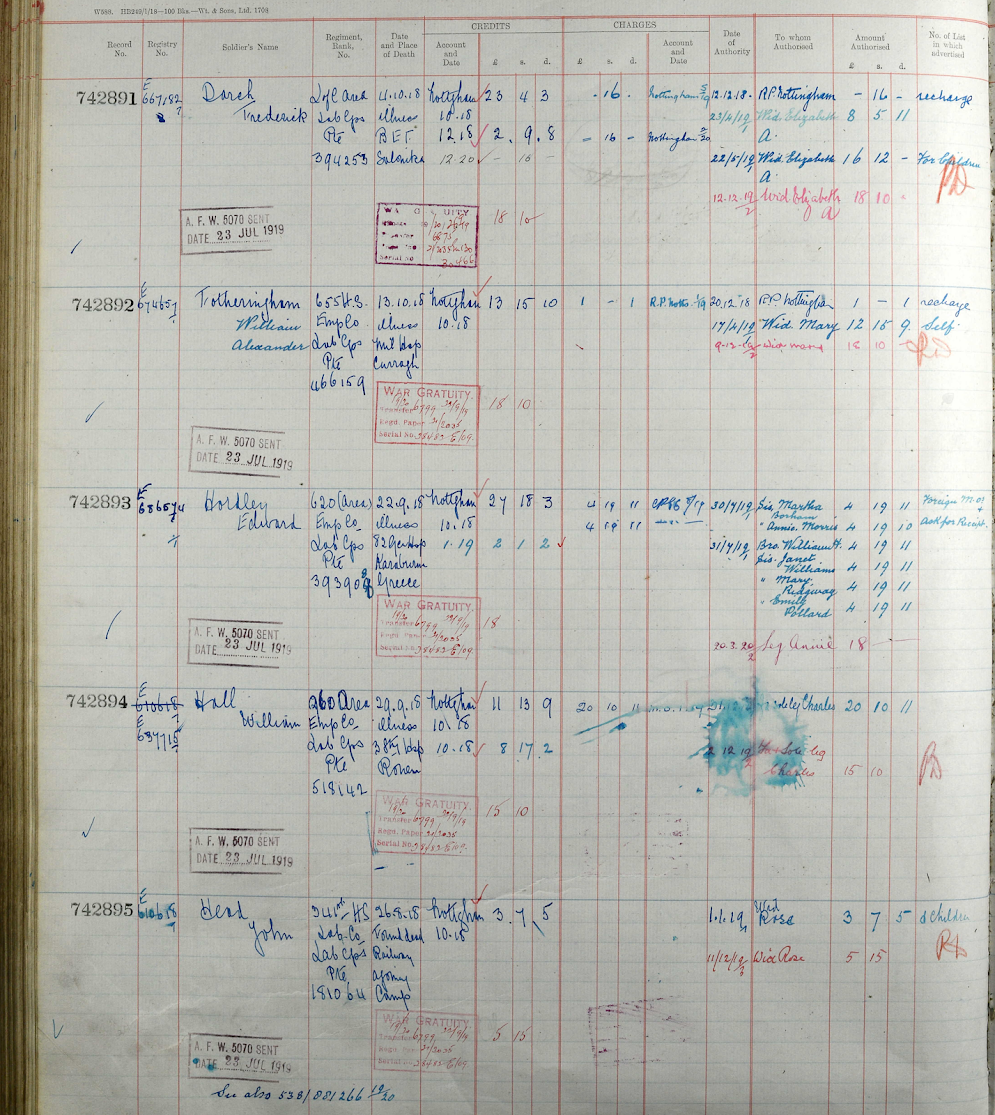 W588. HB249/1/18—100 Bks.—Wt. & Sons, Ltd. 1708
CREDITS CHARGES
Record No. Registry No. Soldier's Name Regiment, Rank, No. Date and Place of Death Account and Date £ s. d. £ s. d. Account and Date Date of Authority To whom Authorised Amount Authorised £ s. d. No. of List in which advertised
742891 E 667182 Dorch 4.10.18 Nottgham 23 4 3 - 16 - Nottingham 12.12.18 R.P. Nottingham - 16 - recharge
Frederick Lab Cps illness 10.18 23/4/19 Wid Elizabeth 8 5 11
Pte BEF 12.18 2 . 9 . 8 - 16 - Nottingham A.
394253 Salonika 12.20 - 16 - 22/5/19 Wid Elizabeth 16 12 - For Children
A.
12.12.19 Wid Elizabeth 18 10 -
A
WAR GRATUITY 18 10
A. F. W. 5070 SENT
DATE 23 JUL 1919
742892 E 674657 Fotheringham 655 H.S. 13.10.18 Nottgham 13 15 10 1 - 1 R.P. Notts 20.12.18 R.P. Nottingham 1 - 1 recharge
William Emp Co illness 10.18 17/4/19 Wid Mary 12 15 9 Self
Alexander Lab Cps Mil Hosp Wid Mary 18 10 -
Pte Curragh
466159
WAR GRATUITY. 18 10
Transfer 6799
Regd. Paper
Serial No. 38485 E/09.
A. F. W. 5070 SENT
DATE 23 JUL 1919
742893 E 68657 Hordley 620 (Area) 22.9.18 Nottgham 27 18 3 4 19 11 30/7/19 Sis. Martha 4 19 11 Foreign M.O.
Edward Emp Co illness 10.18 4 19 11 Borham
" Annie Morris 4 19 10 Ask for Receipt
Lab Cps 82 Gen Hosp 1.19 2 1 2 31/7/19 Bro. William H. 4 19 11
Pte Karaburun Sis. Janet
393908 Greece Williams 4 19 11
" Mary
Ridgway 4 19 11
" Emily
Pollard 4 19 11
WAR GRATUITY. 18
Transfer 6799
Regd. Paper
Serial No. 38485 E/09.
A. F. W. 5070 SENT
DATE 23 JUL 1919
20.3.20 Leg Annie 18 -
742894 E 610618 Hall 960 Area 29.9.18 Nottgham 11 13 9 20 10 11 Charles 20 10 11
E 637715 William Emp Co illness 10.18
Lab Cps Hosp 10.18 8 17 2 Sole Leg
Pte Rouen Charles 15 10
518142
WAR GRATUITY. 15 10
Transfer 6799
Regd. Paper
Serial No. 38485 E/09.
A. F. W. 5070 SENT
DATE 23 JUL 1919
742895 E 610618 Head 341st HS 26.8.18 Nottgham 3 . 7 . 5 1.1.19 Wid Rose 3 7 5 & Children
John Lab. Co Found dead 10.18
Lab Cps Railway 11/12/19 Wid Rose 5 15
Pte
181064 Camp
WAR GRATUITY 5 15
Transfer 6799
Regd. Paper
Serial No. 38485 E/09.
A. F. W. 5070 SENT
DATE 23 JUL 1919
See also 538/881266 19/20